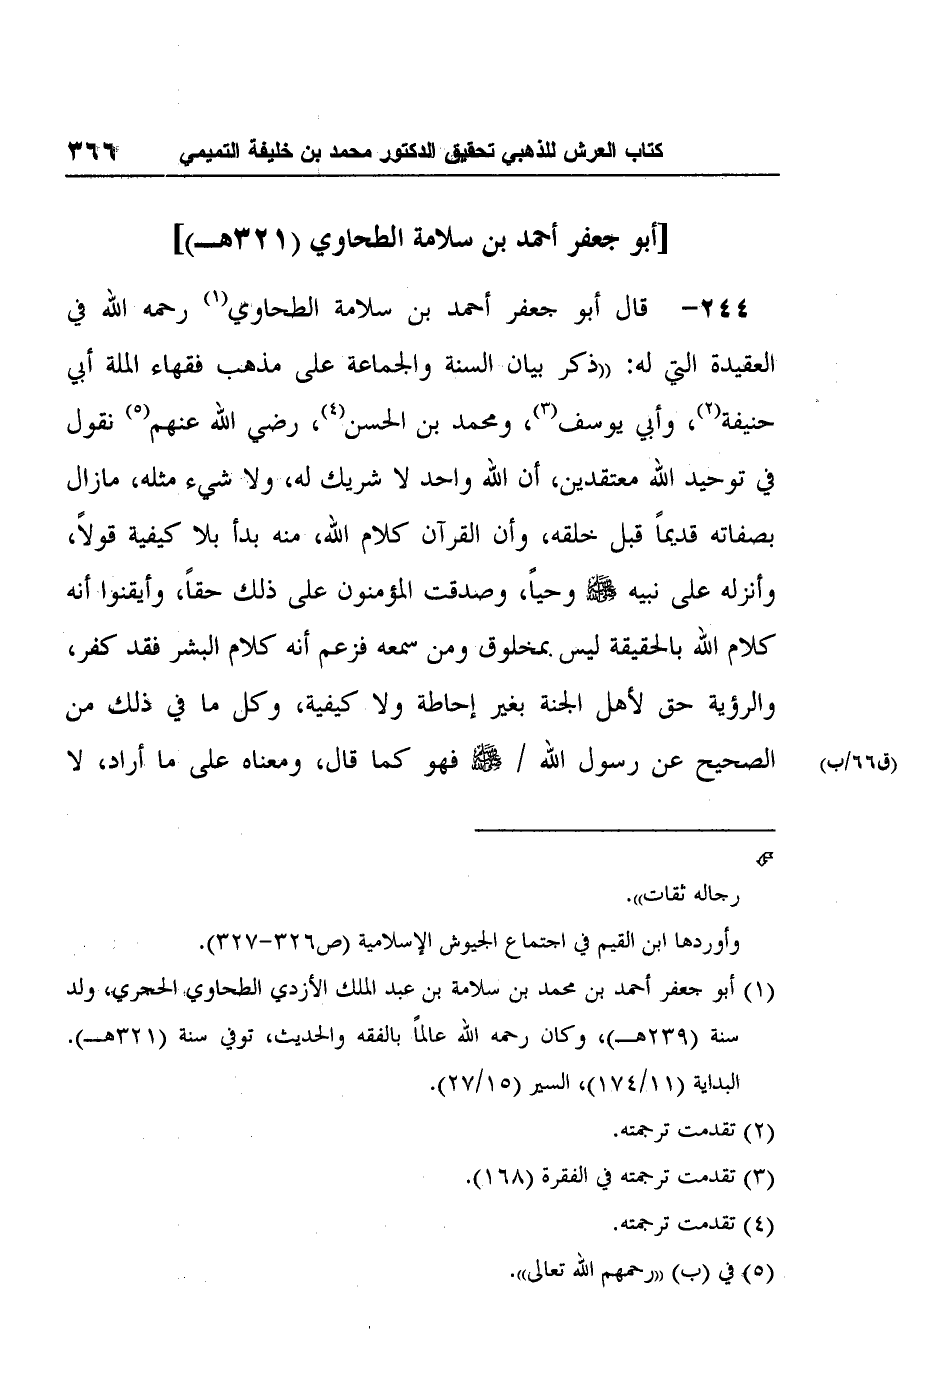 كتاب العرش للذهبي تحقيق الدكتور محمد بن خليفة التميمي ٣٦٦
[أبو جعفر أحمد بن سلامة الطحاوي (٣٢١هـ)]
٢٤٤- قال أبو جعفر أحمد بن سلامة الطحاوي(١) رحمه الله في
العقيدة التي له: «ذكر بيان السنة والجماعة على مذهب فقهاء الملة أبي
حنيفة(٢)، وأبي يوسف(٣)، ومحمد بن الحسن(٤)، رضي الله عنهم(٥) نقول
في توحيد الله معتقدين، أن الله واحد لا شريك له، ولا شيء مثله، مازال
بصفاته قديماً قبل خلقه، وأن القرآن كلام الله، منه بدأ بلا كيفية قولاً،
وأنزله على نبيه ﷺ وحياً، وصدقت المؤمنون على ذلك حقاً، وأيقنوا أنه
كلام الله بالحقيقة ليس بمخلوق ومن سمعه فزعم أنه كلام البشر فقد كفر،
والرؤية حق لأهل الجنة بغير إحاطة ولا كيفية، وكل ما في ذلك من
الصحيح عن رسول الله / ﷺ فهو كما قال، ومعناه على ما أراد، لا
(ق٦٦/ب)
رجاله ثقات».
وأوردها ابن القيم في اجتماع الجيوش الإسلامية (ص٣٢٦-٣٢٧).
(١) أبو جعفر أحمد بن محمد بن سلامة بن عبد الملك الأزدي الطحاوي الحجري، ولد
سنة (٢٣٩هـ)، وكان رحمه الله عالماً بالفقه والحديث، توفي سنة (٣٢١هـ).
البداية (١٧٤/١١)، السير (٢٧/١٥).
(٢) تقدمت ترجمته.
(٣) تقدمت ترجمته في الفقرة (١٦٨).
(٤) تقدمت ترجمته.
(٥) في (ب) «رحمهم الله تعالى».